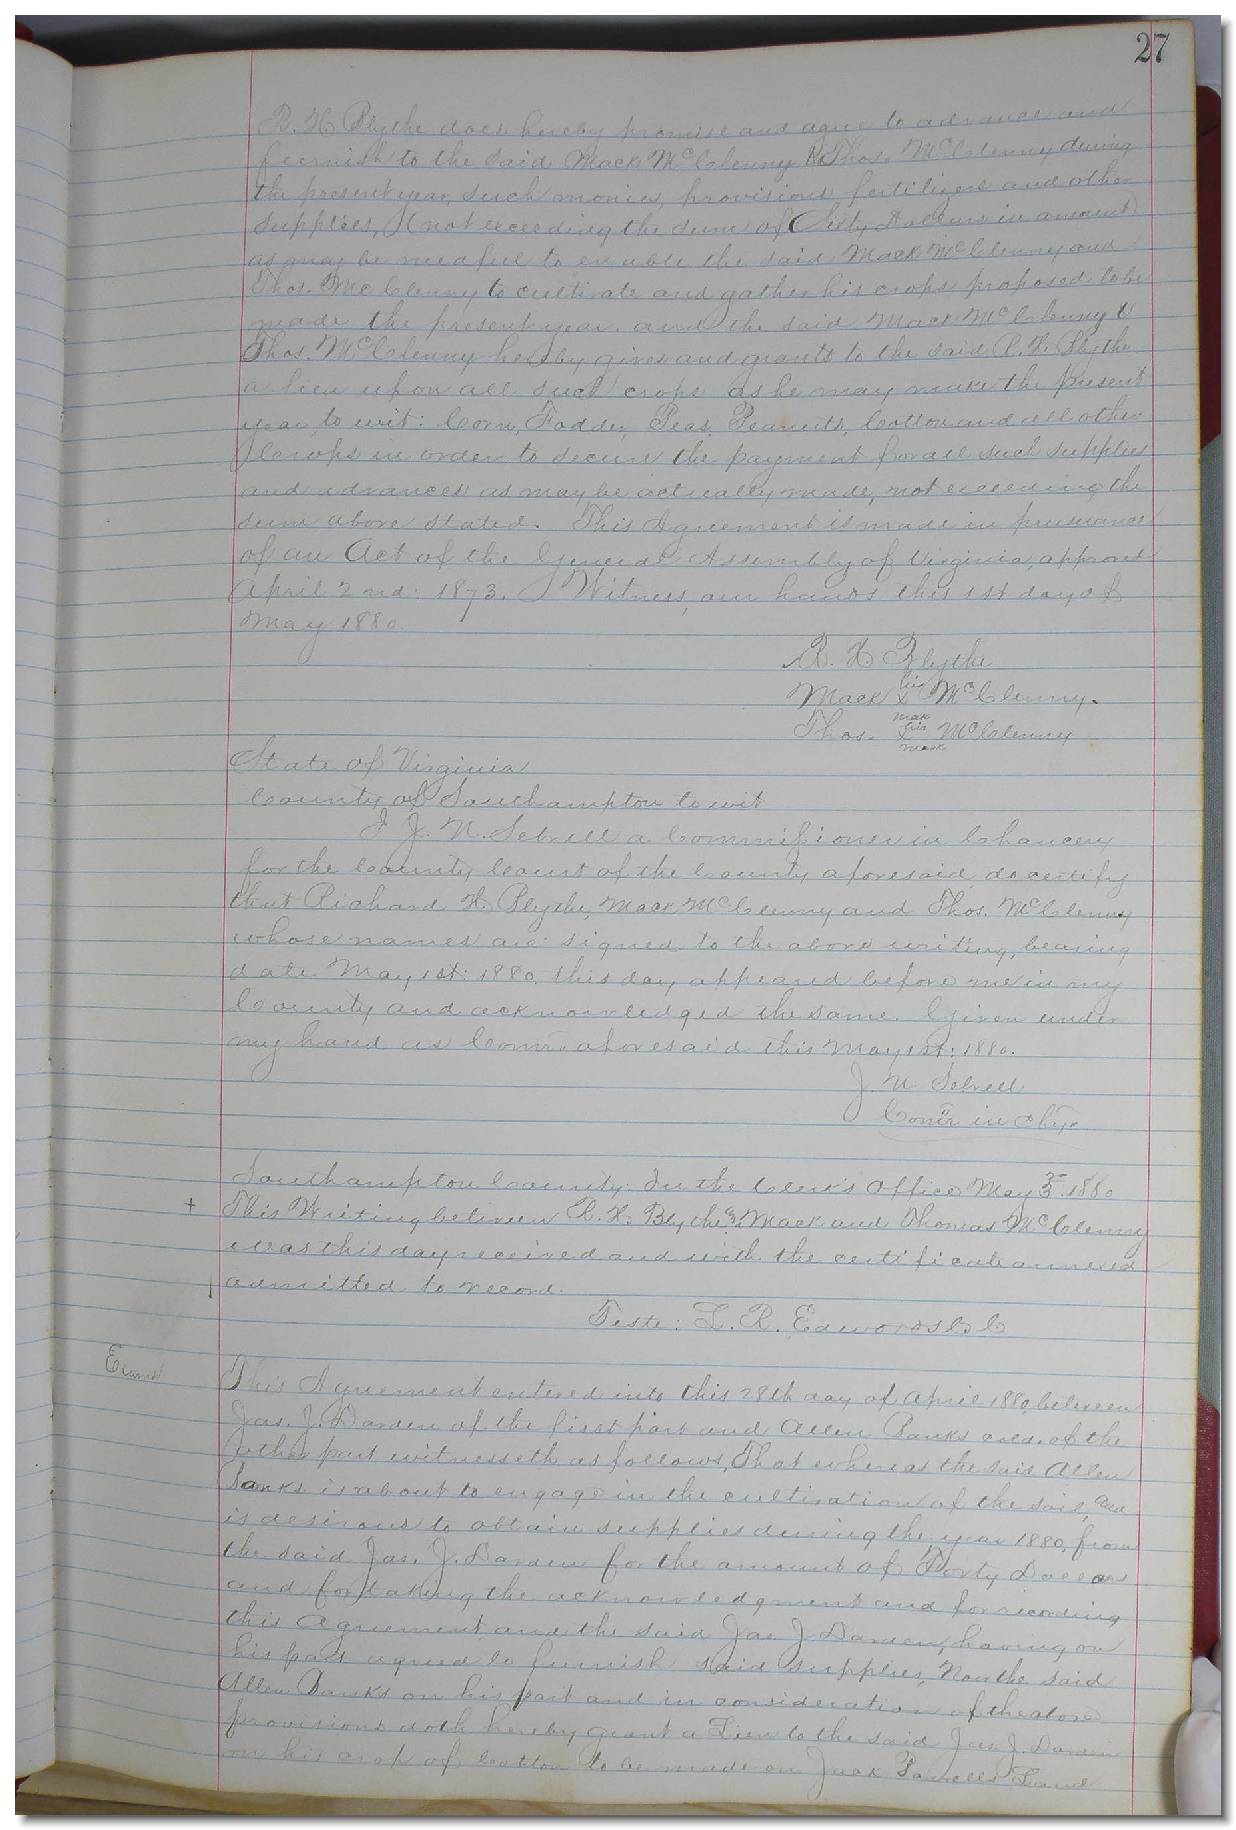 27
R. H. Blythe does hereby promise and agree to advance and
furnish to the said Mack McClenny & Thos. McClenny during
the present year, such monies, provisions fertilizers and other
supplies, (not exceeding the sum of Sixty Dollars in amount)
as may be needful to enable the said Mack McClenny and
Thos. McClenny to cultivate and gather his crops proposed to be
made the present year. and the said Mack McClenny &
Thos. McClenny hereby gives and grants to the said R. H. Blythe
a lien upon all such crops as he may make the present
year, to wit: Corn, Fodder, Peas, Peanuts, Cotton and all other
Crops in order to secure the payment for all such supplies
and advances as may be actually made, not exceeding the
sum above stated. This Agreement is made in pursuance
of an Act of the General Assembly of Virginia, approved
April 2nd. 1873. Witness, our hands this 1st day of
May 1880.
R. H. Blythe
his
Mack X McClenny.
mark
his
Thos. X McClenny
mark
State of Virginia
County of Southampton to wit
I J. N. Sebrell a Commissioner in Chancery
for the County Court of the County aforesaid, do certify
that Richard H. Blythe, Mack McClenny and Thos. McClenny
whose names are signed to the above writing, bearing
date May 1st. 1880. this day appeared before me in my
County and acknowledged the same. Given under
my hand as Comr. aforesaid this May 1st. 1880.
J. N. Sebrell
Comr in Chy
Southampton County: In the Clerk's Office May 3 1880
+ This Writing between R. H. Blythe & Mack and Thomas McClenny
was this day received and with the certificate annexed
admitted to record.
Teste: L. R. Edwards C. C
This Agreement entered into this 28th day of April 1880, between
Jas. J. Darden of the first part and Allen Banks cold. of the
other part witnesseth as follows, That whereas the said Allen
Banks is about to engage in the cultivation of the soil, and
is desirous to obtain supplies during the year 1880, from
the said Jas. J. Darden for the amount of Forty Dollars
and for taking the acknowledgment and for recording
this Agreement and the said Jas. J. Darden, having on
his part agreed to furnish said supplies, Now the said
Allen Banks on his part and in consideration of the above
provisions doth hereby grant a Lien to the said Jas. J. Darden
on his crop of Cotton to be made on Jack Powells Land